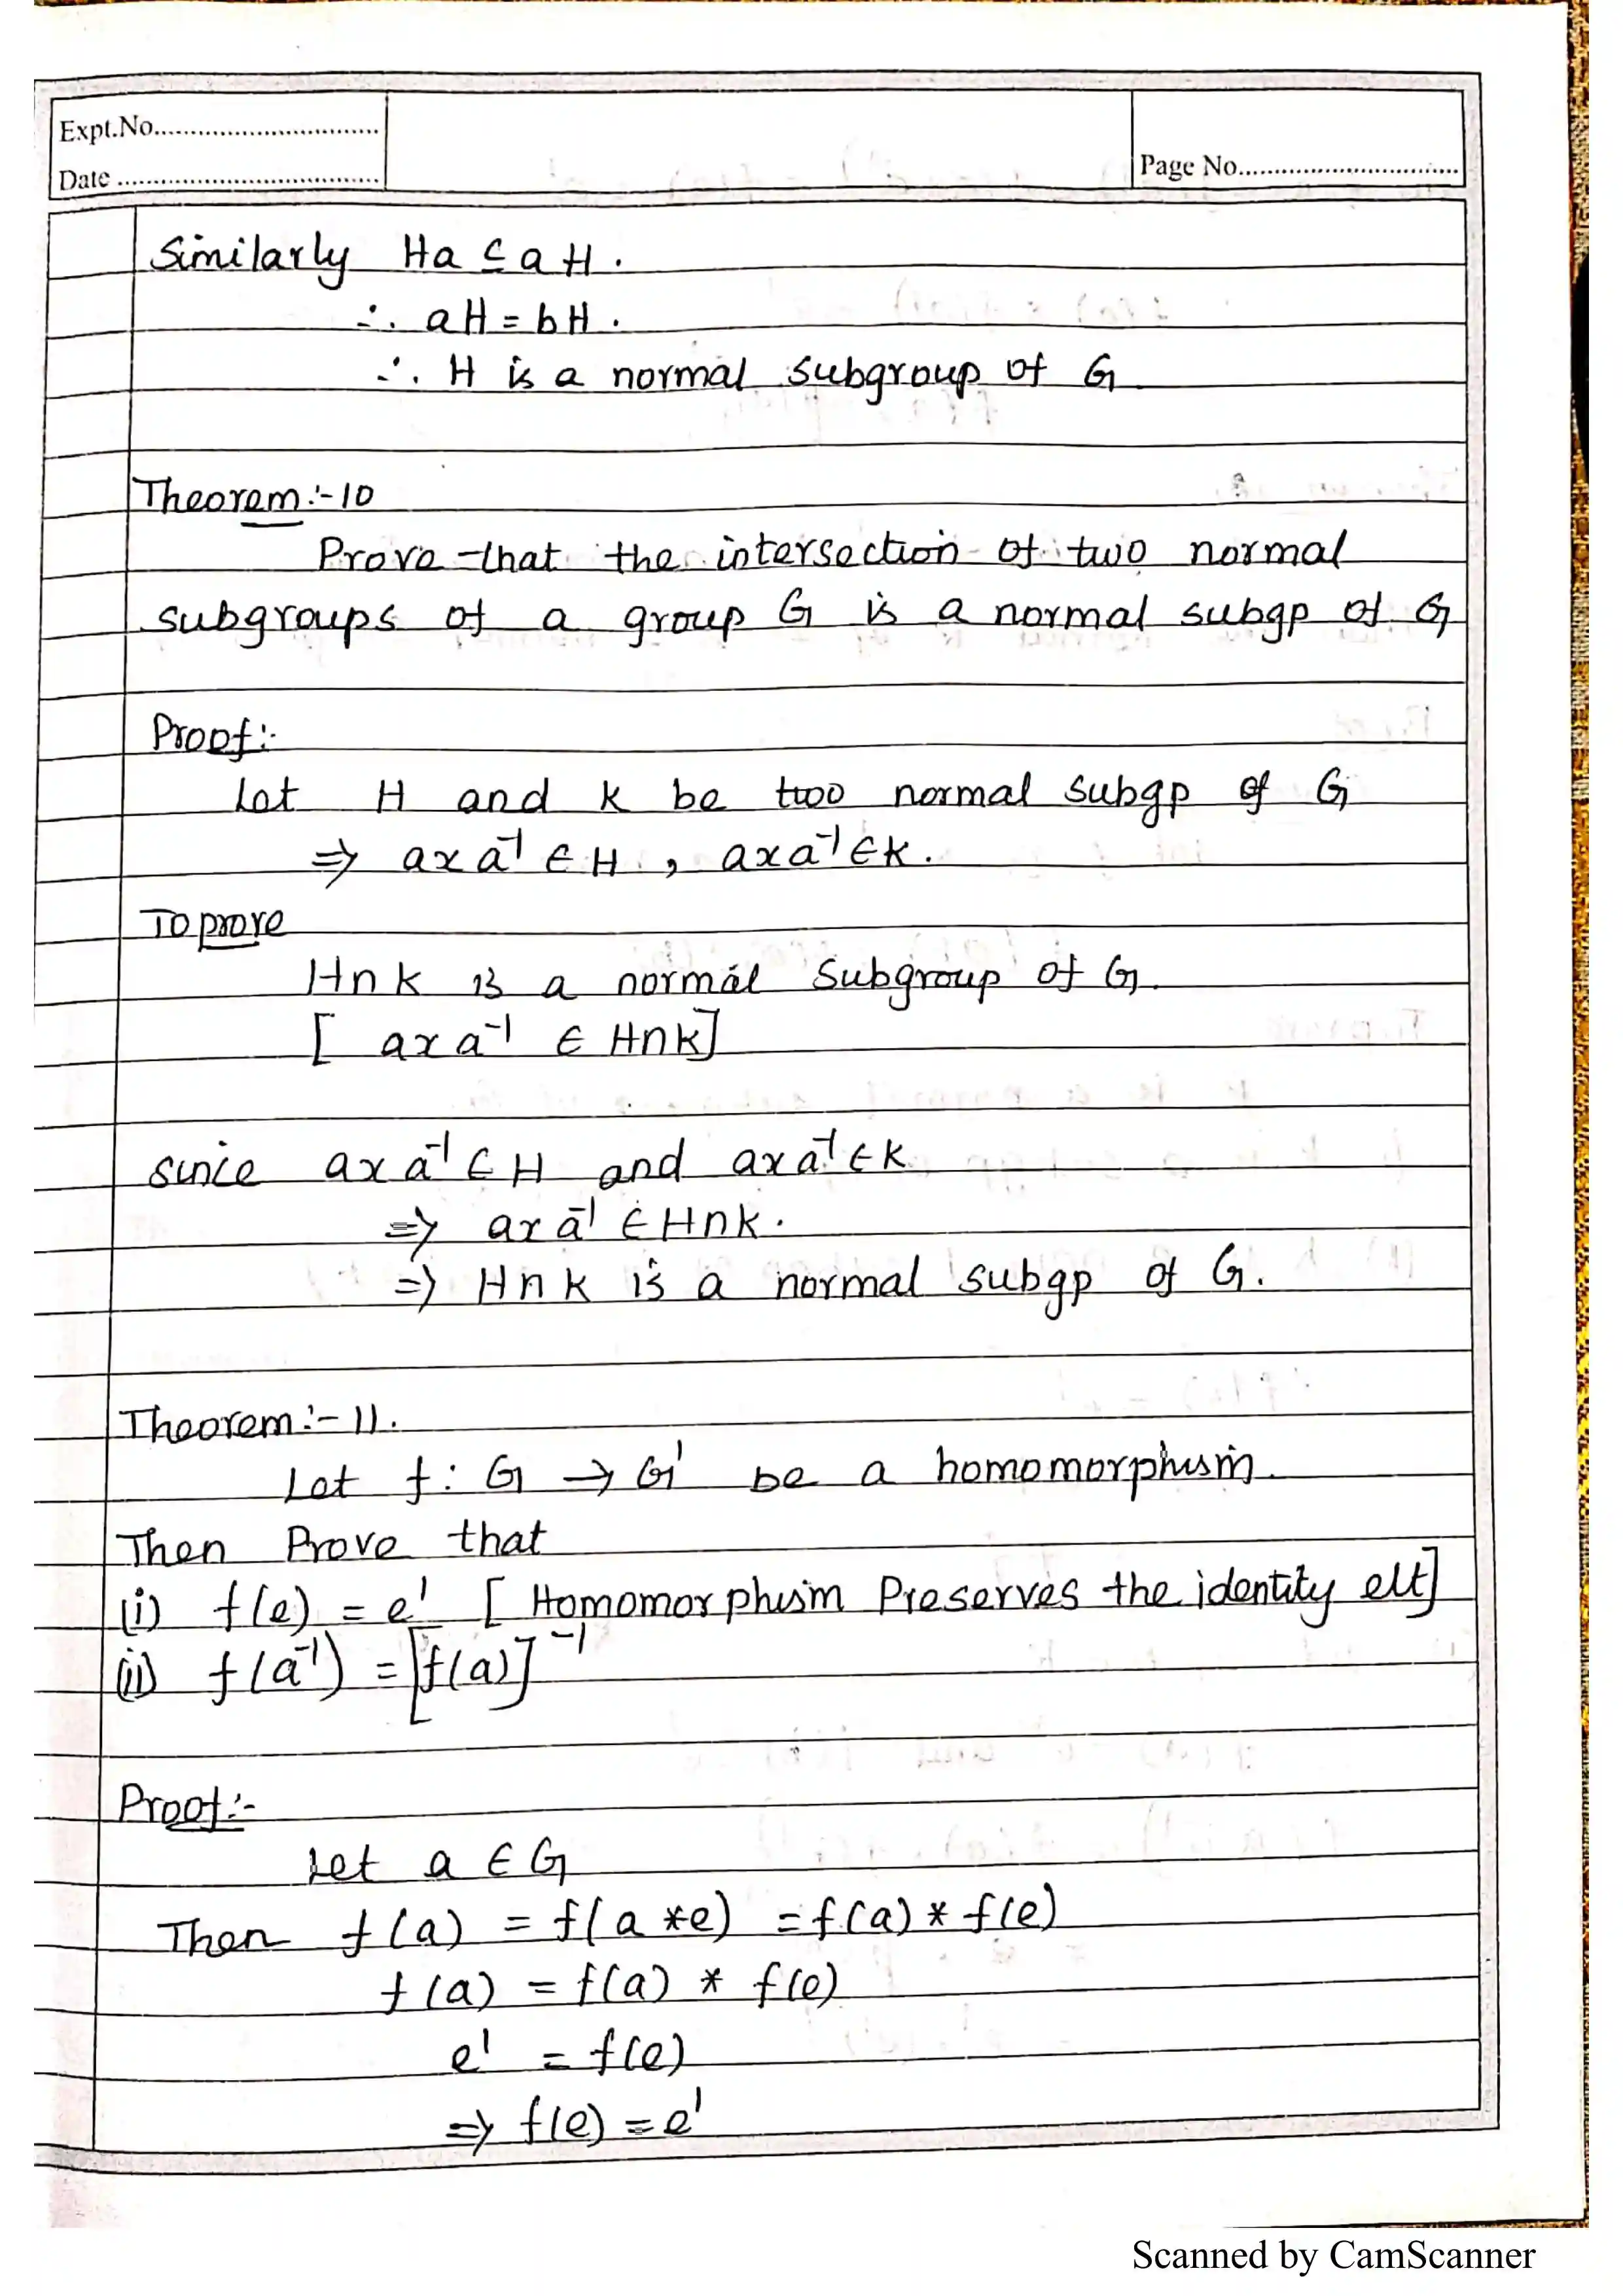 Expt.No................................
Date .....................................
Page No...............................
Similarly Ha ⊆ aH.
∴ aH = bH.
∴ H is a normal subgroup of G
Theorem:-10
Prove that the intersection of two normal
subgroups of a group G is a normal subgp of G
Proof:-
Let H and K be two normal subgp of G
⇒ axa⁻¹ ∈ H, axa⁻¹ ∈ K.
To prove
H∩K is a normal Subgroup of G.
[ axa⁻¹ ∈ H∩K]
since axa⁻¹ ∈ H and axa⁻¹ ∈ K
⇒ axa⁻¹ ∈ H∩K.
⇒ H∩K is a normal subgp of G.
Theorem:-11.
Let f: G → G' be a homomorphism.
Then Prove that
(i) f(e) = e' [ Homomorphism Preserves the identity elt]
(ii) f(a⁻¹) = [f(a)]⁻¹
Proof:-
Let a ∈ G
Then f(a) = f(a*e) = f(a) * f(e)
f(a) = f(a) * f(e)
e' = f(e)
⇒ f(e) = e'
Scanned by CamScanner